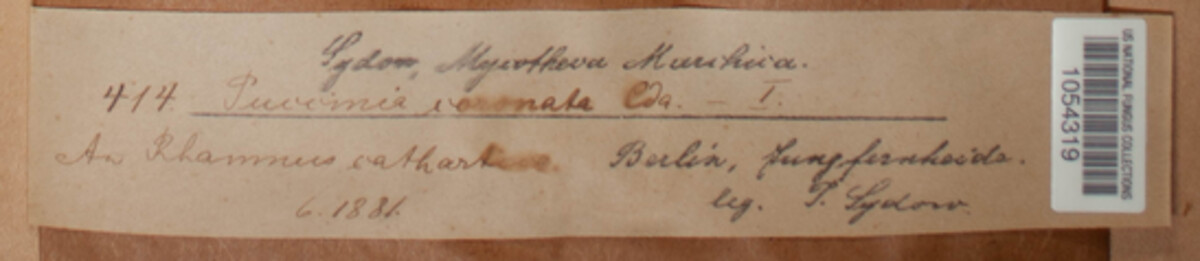 Sydow, Mycotheca Marchica.
414. Puccinia coronata Cda. — I.
An Rhamnus cathartica. Berlin, Jungfernheide.
6.1881. leg. P. Sydow.
US NATIONAL FUNGUS COLLECTIONS
1054319